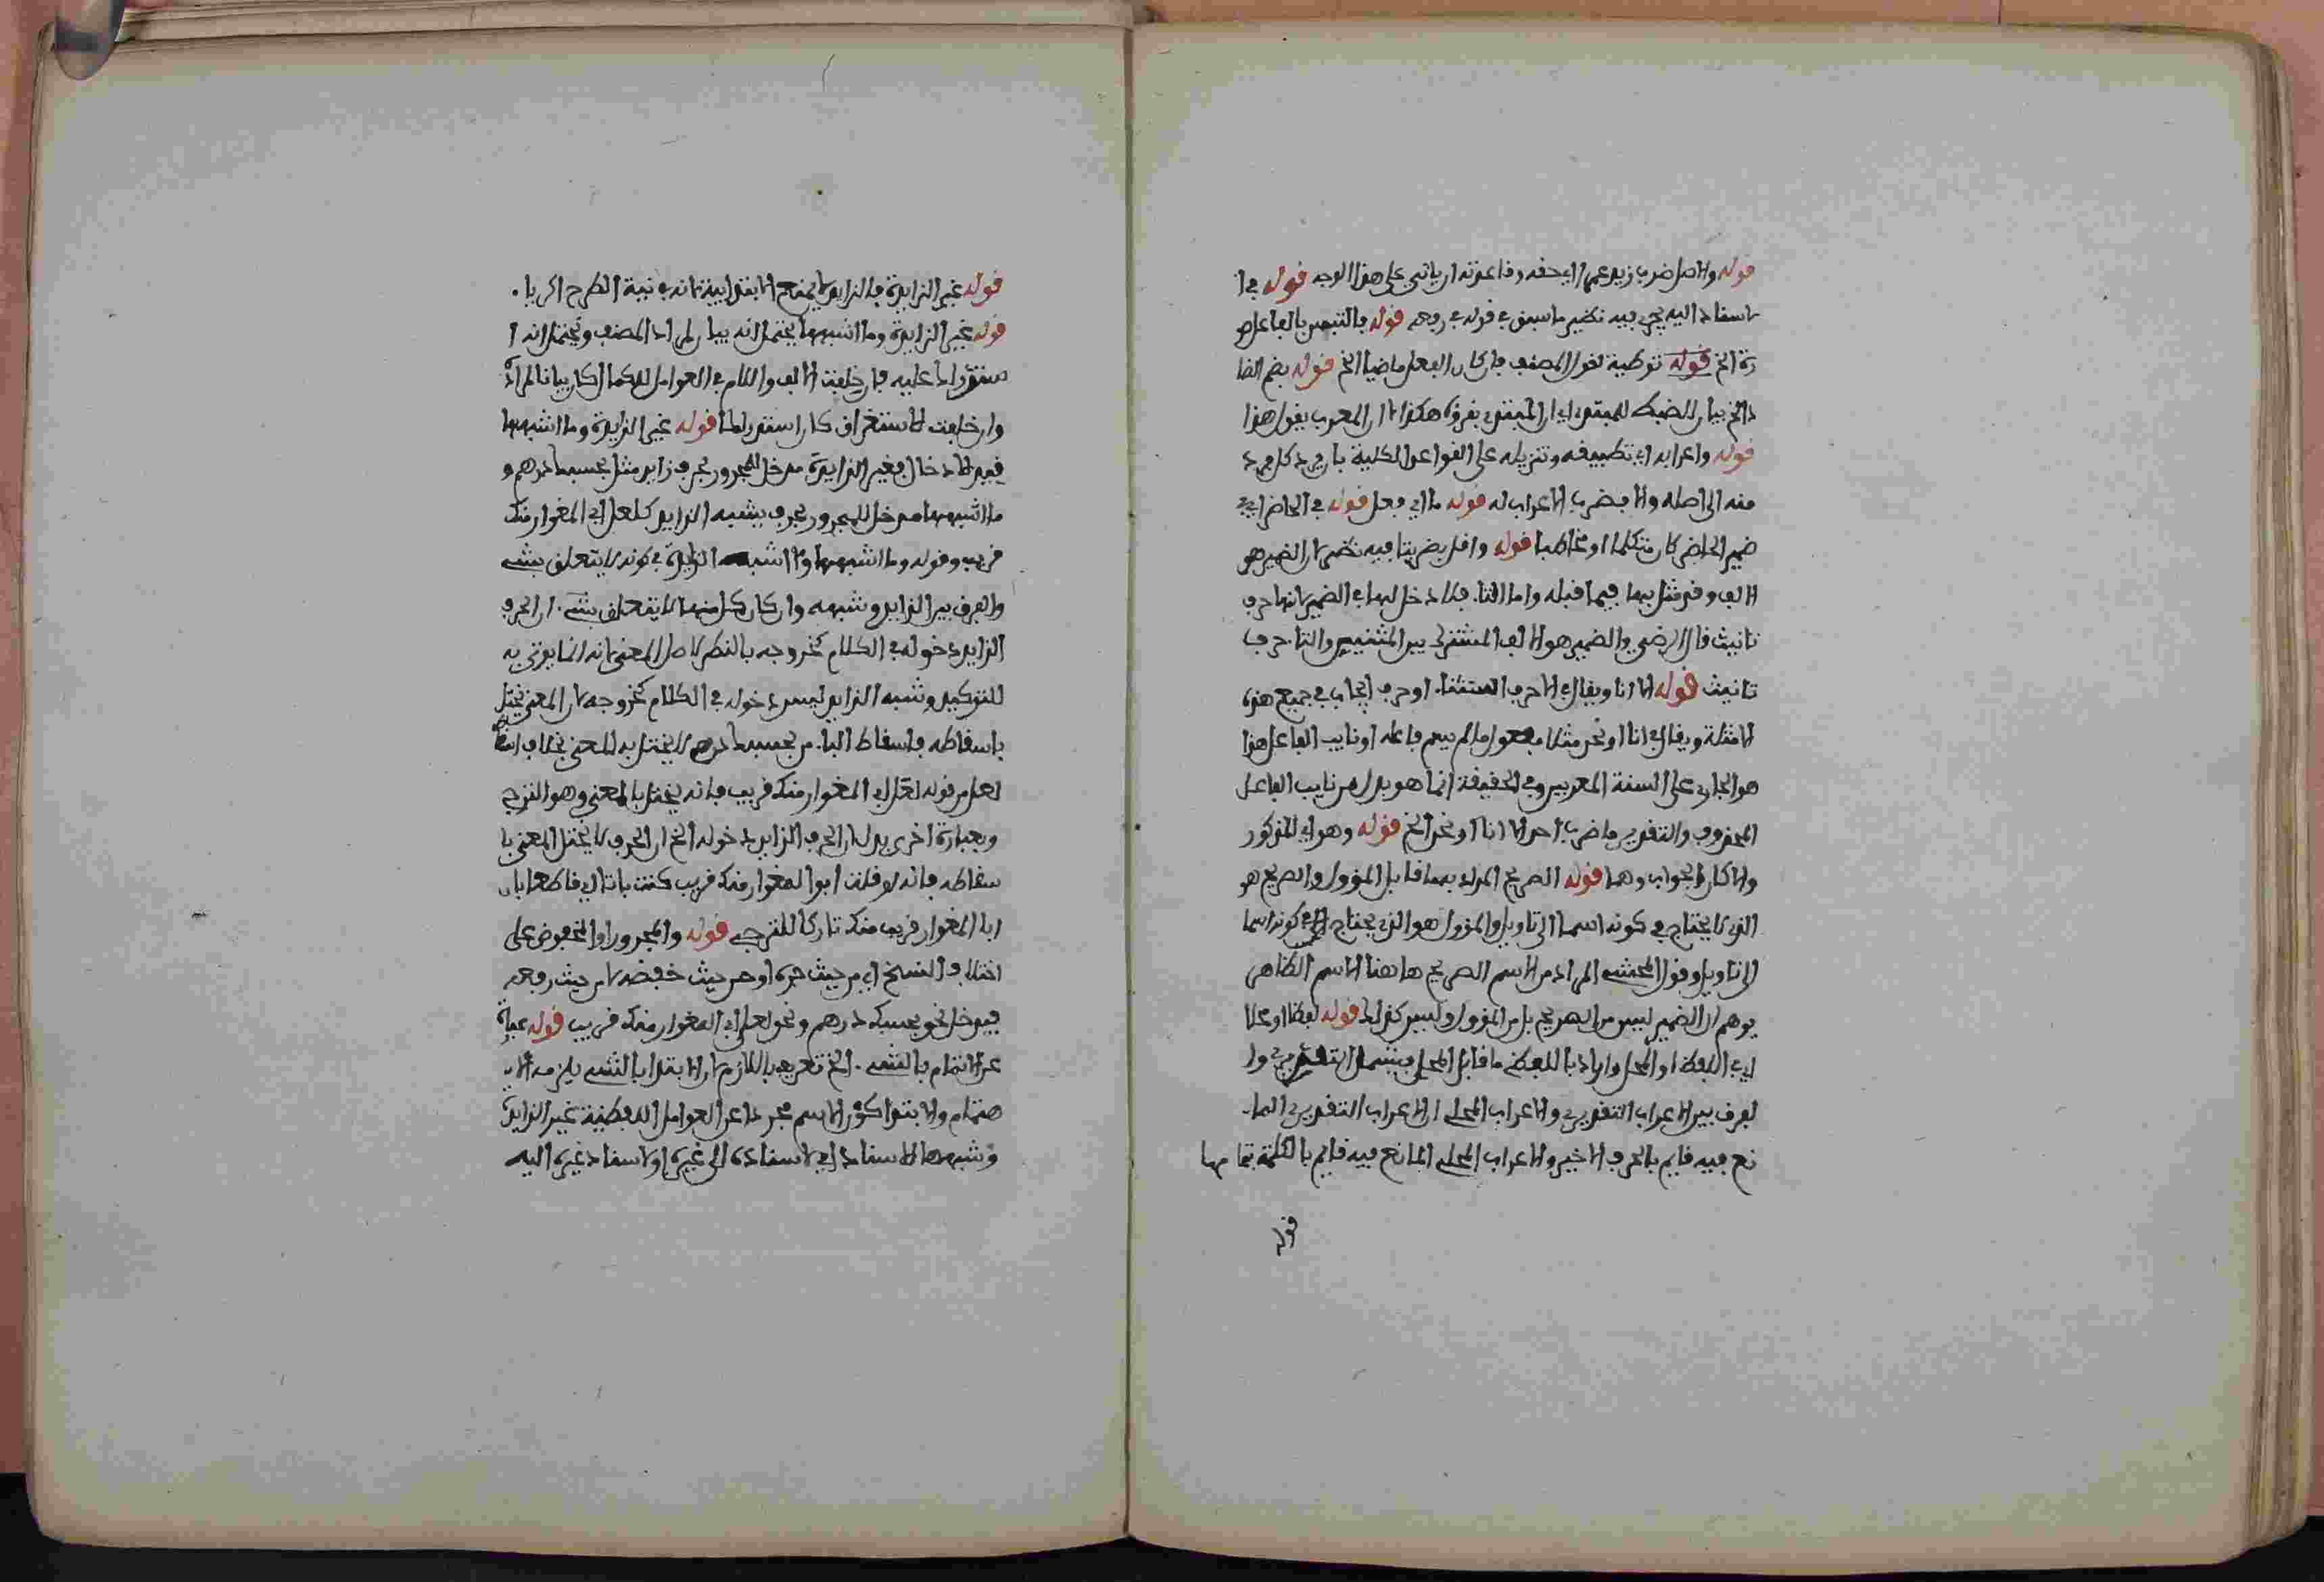 قوله والاصل ضرب زيد عمرا اي حقه وقاعدته ان ياتي على هذا الوجه قوله في ا
لاسناد اليه يجري فيه نظير ما سبق في قوله في رفعه قوله فالتبس بالفاعل صو
رة الخ قوله توطية لقول المصنف فان كان الفعل ماضيا الخ قوله بضم الضا
د الخ بيان للضبط للمبتدي اي ان المبتدي يقرؤه هكذا لا ان المعرب يقول هذا
قوله واعرابه اي تطبيقه وتنزيله على القواعد الكلية بان يرد كل فرد
منه الى اصله والا فضرب لا اعراب له قوله ما اي فعل قوله في الحاضر اي في
ضمير الحاضر كان متكلما او مخاطبا قوله واقل بضربتا فيه نظر لان الضمير هو
الالف وقد مثل بها فيما قبله واما التاء فلا دخل لها في الضمير لانها حرف
تانيث قال الرضي والضمير هو الالف المشترك بين المثنيين والتاء حرف
تانيث قوله الا انا ويقال في الا حرف استثناء او حرف ايجاب في جميع هذه
الامثلة ويقال في انا او نحن مثلا مفعول ما لم يسم فاعله او نايب الفاعل هذا
هو الجاري على السنة المعربين وفي الحقيقة انما هو بدل من نايب الفاعل
المحذوف والتقدير ما ضرب احد الا انا او نحن الخ قوله وهو اي المذكور
والا كان الجواب وهما قوله الصريح المراد به ما قابل المؤول والصريح هو
الذي لا يحتاج في كونه اسما الى تاويل والمؤول هو الذي يحتاج في كونه اسما
الى تاويل وقول المحشي المراد من الاسم الصريح هاهنا الاسم الظاهر
يوهم ان الضمير ليس من الصريح بل من المؤول وليس كذلك قوله لفظا او محلا
اي في اللفظ او المحل واراد باللفظ ما قابل المحل فيشمل التقديري وا
لفرق بين الاعراب التقديري والاعراب المحلي ان الاعراب التقديري الما
نع فيه قايم بالحرف الاخير والاعراب المحلي المانع فيه قايم بالكلمة بتمامها
قوله
قوله غير الزايدة فالزايد لا يمنع الابتدايية لانه في نية الطرح اكريا.
قوله غير الزايدة وما اشبهها يحتمل انه بيان لمراد المصنف ويحتمل انه ا
ستدراك عليه فان جعلت الالف واللام في العوامل للكمال كان بيانا لمراده
وان جعلت للاستغراق كان استدراكا قوله غير الزايدة وما اشبهها
قيد لادخال فغير الزايدة مدخل للمجرور بحرف زايد مثل بحسبك درهم و
ما اشبهها مدخل للمجرور بحرف يشبه الزايد كلعل ابي المغوار منك
قريب وقوله وما اشبهها اي ما اشبه الزايدة في كونه لا يتعلق بشيء
والفرق بين الزايد وشبهه وان كان كل منهما لا يتعلق بشيء. ان الحرف
الزايد دخوله في الكلام كخروجه بالنظر لاصل المعنى لانه انما يوتى به
للتوكيد وشبه الزايد ليس دخوله في الكلام كخروجه لان المعنى يختل
باسقاطه فاسقاط الباء من بحسبك درهم لا يختل به المعنى بخلاف اسقاط
لعل من قوله لعل ابي المغوار منك قريب فانه يختل بالمعنى وهو الترجي
وبعبارة اخرى بدل ان الحرف الزايد دخوله الخ ان الحرف لا يختل المعنى با
سقاطه فانه لو قلت ابو المغوار منك قريب كنت باتا اي قاطعا بان
ابا المغوار قريب منك تاركا للترجي قوله والمجرور او المخفوض على
اختلاف النسخ اي من حيث جره او من حيث خفضه لا من حيث رفعه
فيدخل نحو بحسبك درهم ونحو لعل ابي المغوار منك قريب قوله عبارة
عن الاهتمام بالشيء. الخ تعريف باللازم لان الابتداء بالشيء يلزمه الا
هتمام والابتداء كون الاسم مجردا عن العوامل اللفظية غير الزايدة
وشبهها للاسناد اي لاسناده الى غيره او لاسناد غيره اليه